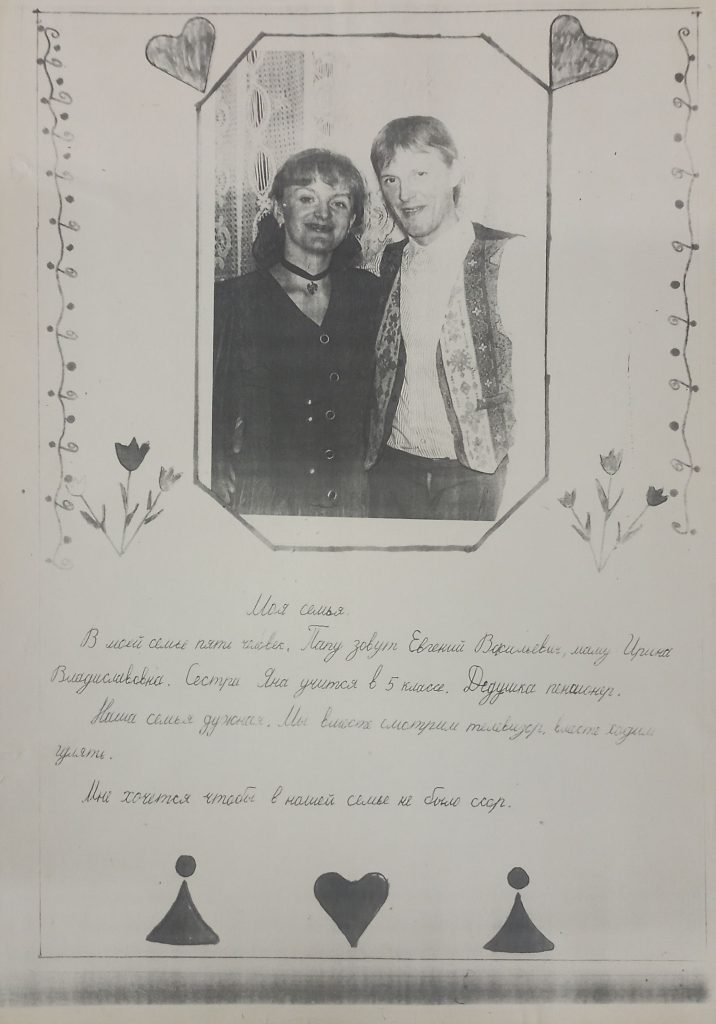 Моя семья.
В моей семье пять человек. Папу зовут Евгений Васильевич, маму Ирина
Владиславовна. Сестра Яна учится в 5 классе. Дедушка пенсионер.
Наша семья дужная. Мы вместе смотрим телевизор, вместе ходим
гулять.
Мне хочется чтобы в нашей семье не было ссор.